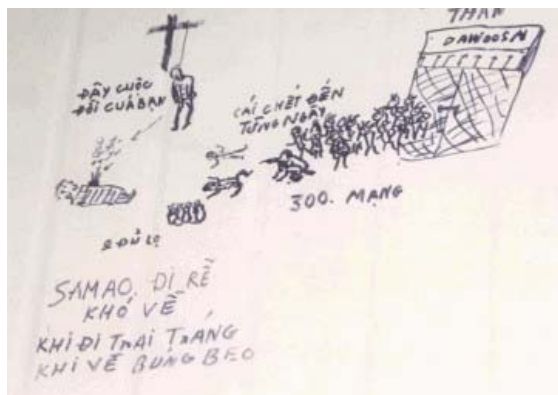 THAN
DAWOOSN
ĐÂY CUỘC
ĐỜI CỦA BẠN
CÁI CHẾT ĐẾN
TỪNG NGÀY
300. MẠNG
SAMAO ĐI RẼ
KHÓ VỀ
KHI ĐI TRAI TRÁNG
KHI VỀ BỦNG BEO